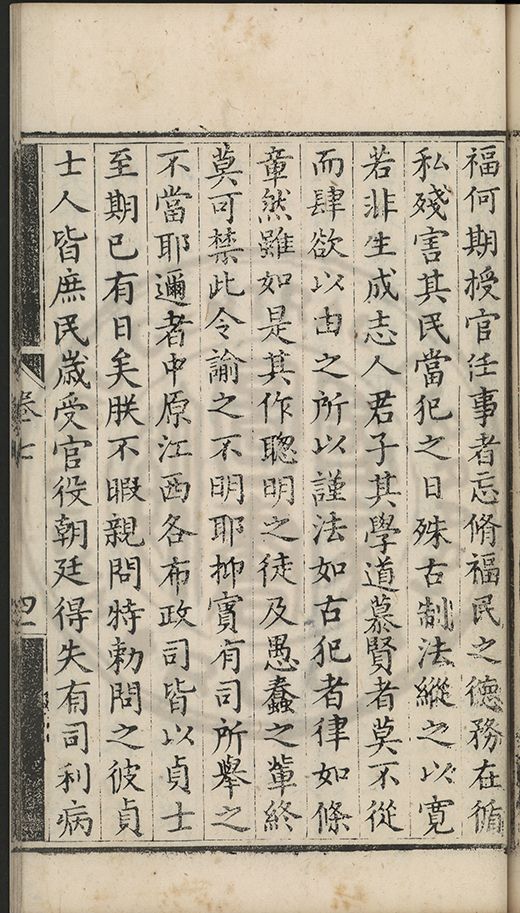 福何期授官任事者忘脩福民之德務在循
私殘害其民當犯之日殊古制法縱之以寬
若非生成志人君子其學道慕賢者莫不從
而肆欲以由之所以謹法如古犯者律如條
章然雖如是其作聰明之徒及愚蠢之輩終
莫可禁此令諭之不明耶抑實有司所舉之
不當耶邇者中原江西各布政司皆以貞士
至期已有日矣朕不暇親問特勑問之彼貞
士人皆庶民歲受官役朝廷得失有司利病
卷七
四